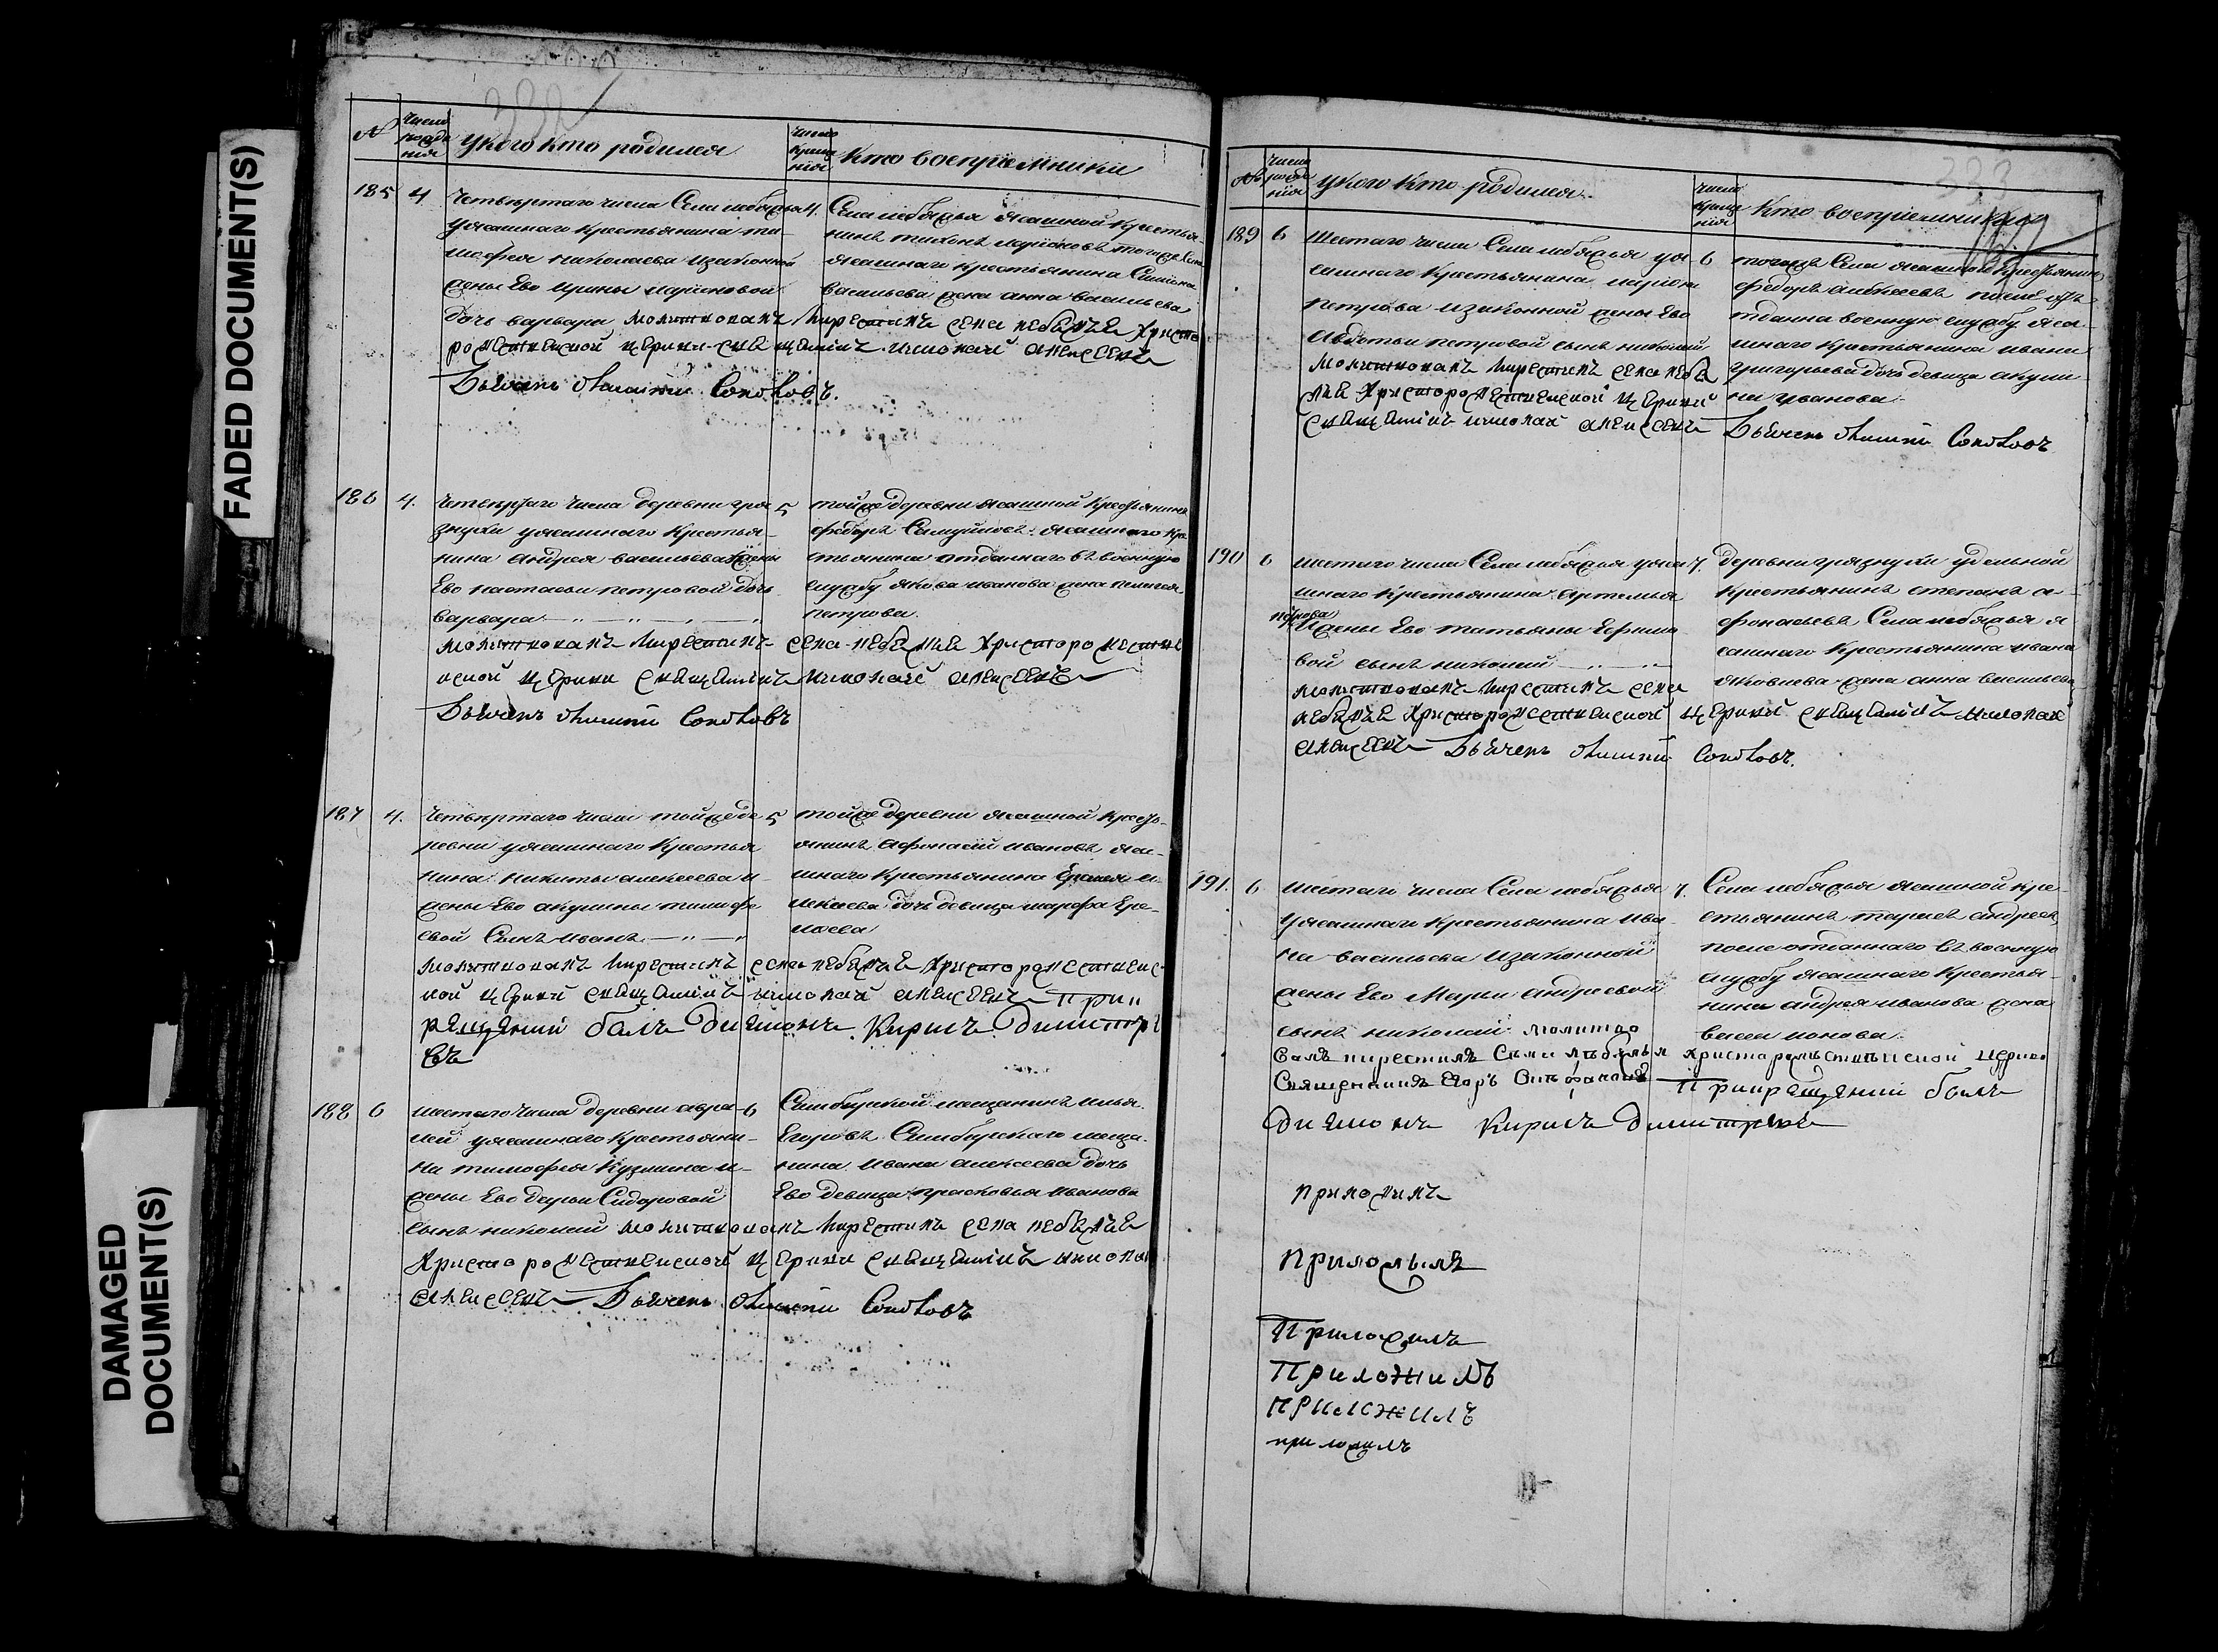 FADED DOCUMENT(S)
DAMAGED
DOCUMENT(S)
332
№
Число рожде нія
У кого кто родился
Число креще нія
Кто воспріемники
185 4
Четвертаго числа Села лебяжья
у ясашнаго крестьянина ти-
мофея николаева изаконной
жены Ево ирины ларионовой
дочь варвара молитвовалъ и крестилъ села лебяжья Христо
рождественской церкви священникъ николай алексеевъ
Дьячекъ Соколовъ.
4.
Села лебяжья ясашной крестья-
нинъ тихонъ ларионовъ тогоже Села
ясашнаго крестьянина Симиона
васильева жена анна васильева
186 4.
Четвертаго числа деревни гря
знухи у ясашнаго крестья-
нина андрея васильева жены
Ево настасьи петровой дочь
варвара
молитвовалъ и крестилъ села лебяжья Христорождестве
нской церкви священникъ николай алексеевъ
Дьячекъ Соколовъ
5
тойже деревни ясашной крестьянинъ
федоръ Самуйловъ ясашнаго кре
стьянина отданнаго въ военную
службу якова иванова жена пелагея
петрова
187 4.
Четвертаго числа тойже де
ревни у ясашнаго крестья
нина никиты алексеева и
жены Ево акулины тимофе
евой Сынъ иванъ
молитвовалъ и крестилъ села лебяжья Христорождественс
кой церкви священникъ николай алексеевъ При
крещении былъ диаконъ Кирилъ Димитрі
евъ
5
тойже деревни ясашной кресть-
янинъ афонасий ивановъ яса-
шнаго крестьянина
дочь девица марфа Ере-
меева
188 6
шестаго числа деревни
у ясашнаго крестьяни-
на тимофея кузмина и
жены Ево дарьи Сидоровой
сынъ николай молитвовалъ и крестилъ села лебяжья
Христорождественской церкви священникъ николай
алексеевъ Дьячекъ Соколовъ
6
Симбирской мещанинъ илья
Егоровъ Симбирскаго меща-
нина ивана алексеева дочь
Ево девица прасковья иванова
333
№
Число рожде нія
У кого кто родился
Число креще нія
Кто воспріемники
189 6
Шестаго числа Села лебяжья у я-
сашнаго крестьянина лариона
петрова изаконной жены Ево
Авдотьи петровой сынъ николай
молитвовалъ и крестилъ села лебя
жья Христорождественской церкви
священникъ николай алексеевъ
6
тогоже Села ясашной крестьянинъ
федоръ алексеевъ
тданна военную службу яса-
шнаго крестьянина ивана
григорьева дочь девица акули-
на иванова
Дьячекъ Соколовъ
190 6
шестаго числа Села лебяжья у яса
шнаго крестьянина артемья
и жены Ево татьяны Ефимо
вой сынъ николай
молитвовалъ и крестилъ села
лебяжья Христорождественской церкви священникъ николай
алексеевъ Дьячекъ Соколовъ.
7.
деревни грязнухи удельной
крестьянинъ степанъ а-
фонасьевъ Села лебяжья я
сашнаго крестьянина ивана
яковлева жена анна васильева
191. 6
шестаго числа Села лебяжья
у ясашнаго крестьянина ива-
на васильева изаконной
жены Ево Марьи андреевой
сынъ николай молитво
валъ и крестилъ Села лебяжья христорождественской церкви
Священникъ Егоръ При крещении былъ
диаконъ Кирилъ Димитріевъ
7.
Села лебяжья ясашной кре-
стьянинъ андреевъ
после отданнаго въ военную
службу ясашнаго крестья-
нина андрея иванова жена
ионова
приложилъ
приложилъ
Приложилъ
Приложилъ
приложилъ
приложилъ